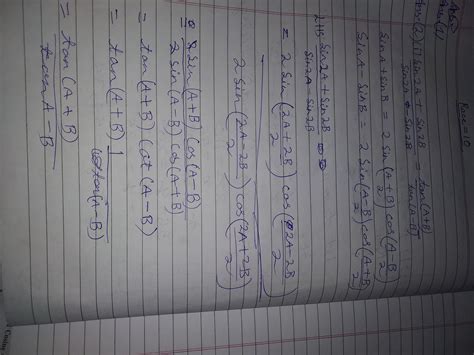 Ans(1)
(2) If Sin2A + Sin2B / Sin2A - Sin2B = tan(A+B) / tan(A-B)
SinA + SinB = 2 Sin(A+B/2) cos(A-B/2)
SinA - SinB = 2 Sin(A-B/2) cos(A+B/2)
Sin2A + Sin2B / Sin2A - Sin2B
= 2 Sin(2A+2B/2) cos(2A-2B/2) / 2 Sin(2A-2B/2) cos(2A+2B/2)
= 2 Sin(A+B) cos(A-B) / 2 Sin(A-B) cos(A+B)
= tan(A+B) Cot(A-B)
= tan(A+B) 1 / tan(A-B)
= tan(A+B) / tan A-B